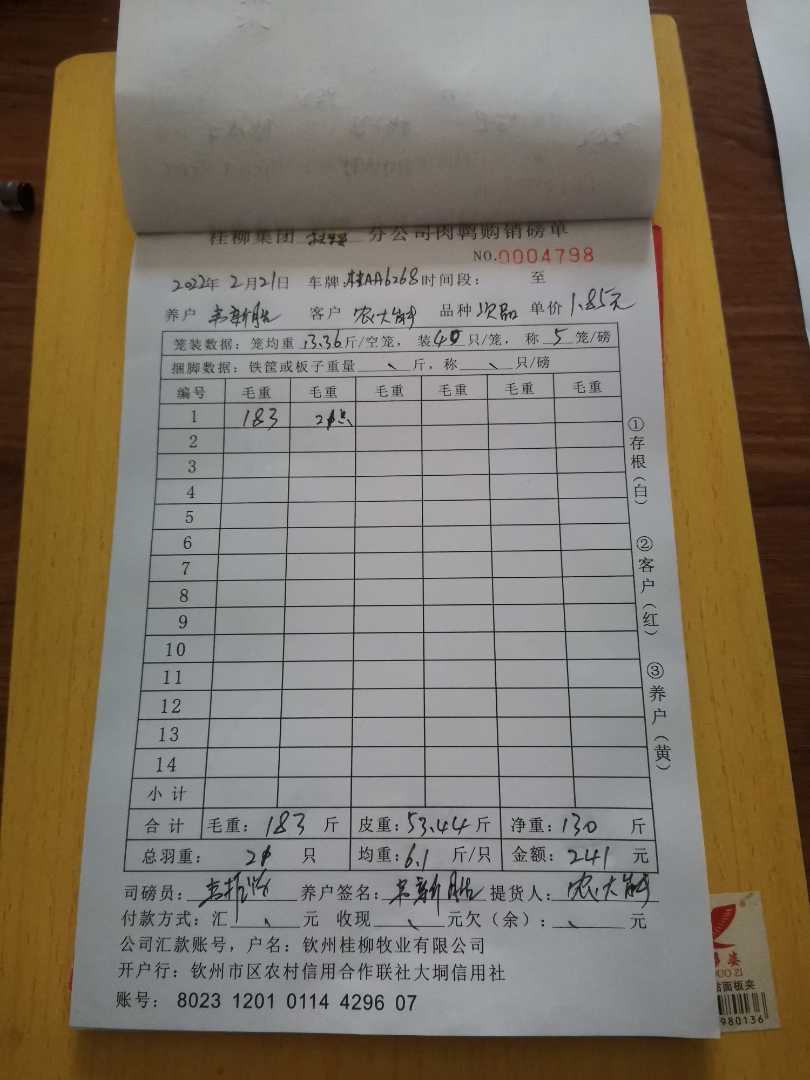 桂柳集团 分公司肉鸭购销磅单
NO.0004798
2022年2月21日 车牌:桂AA6268 时间段: 至
养户 韦新胜 客户 农大 品种 次品 单价 1.85元
笼装数据:笼均重 13.36斤/空笼, 装 只/笼, 称5笼/磅
捆脚数据:铁筐或板子重量 、 斤,称 、 只/磅
编号 毛重 毛重 毛重 毛重 毛重 毛重
1 183
2
3
4
5
6
7
8
9
10
11
12
13
14
小计
合计 毛重:183斤 皮重:53.44斤 净重:130斤
总羽重: 只 均重:6.1斤/只 金额:241元
司磅员: 养户签名:韦新胜 提货人:农大
付款方式:汇 、 元 收现 、 元欠(余): 、 元
公司汇款账号,户名:钦州桂柳牧业有限公司
开户行:钦州市区农村信用合作联社大垌信用社
账号: 8023 1201 0114 4296 07
①存根(白)
②客户(红)
③养户(黄)
UO ZI
面板夹
980136